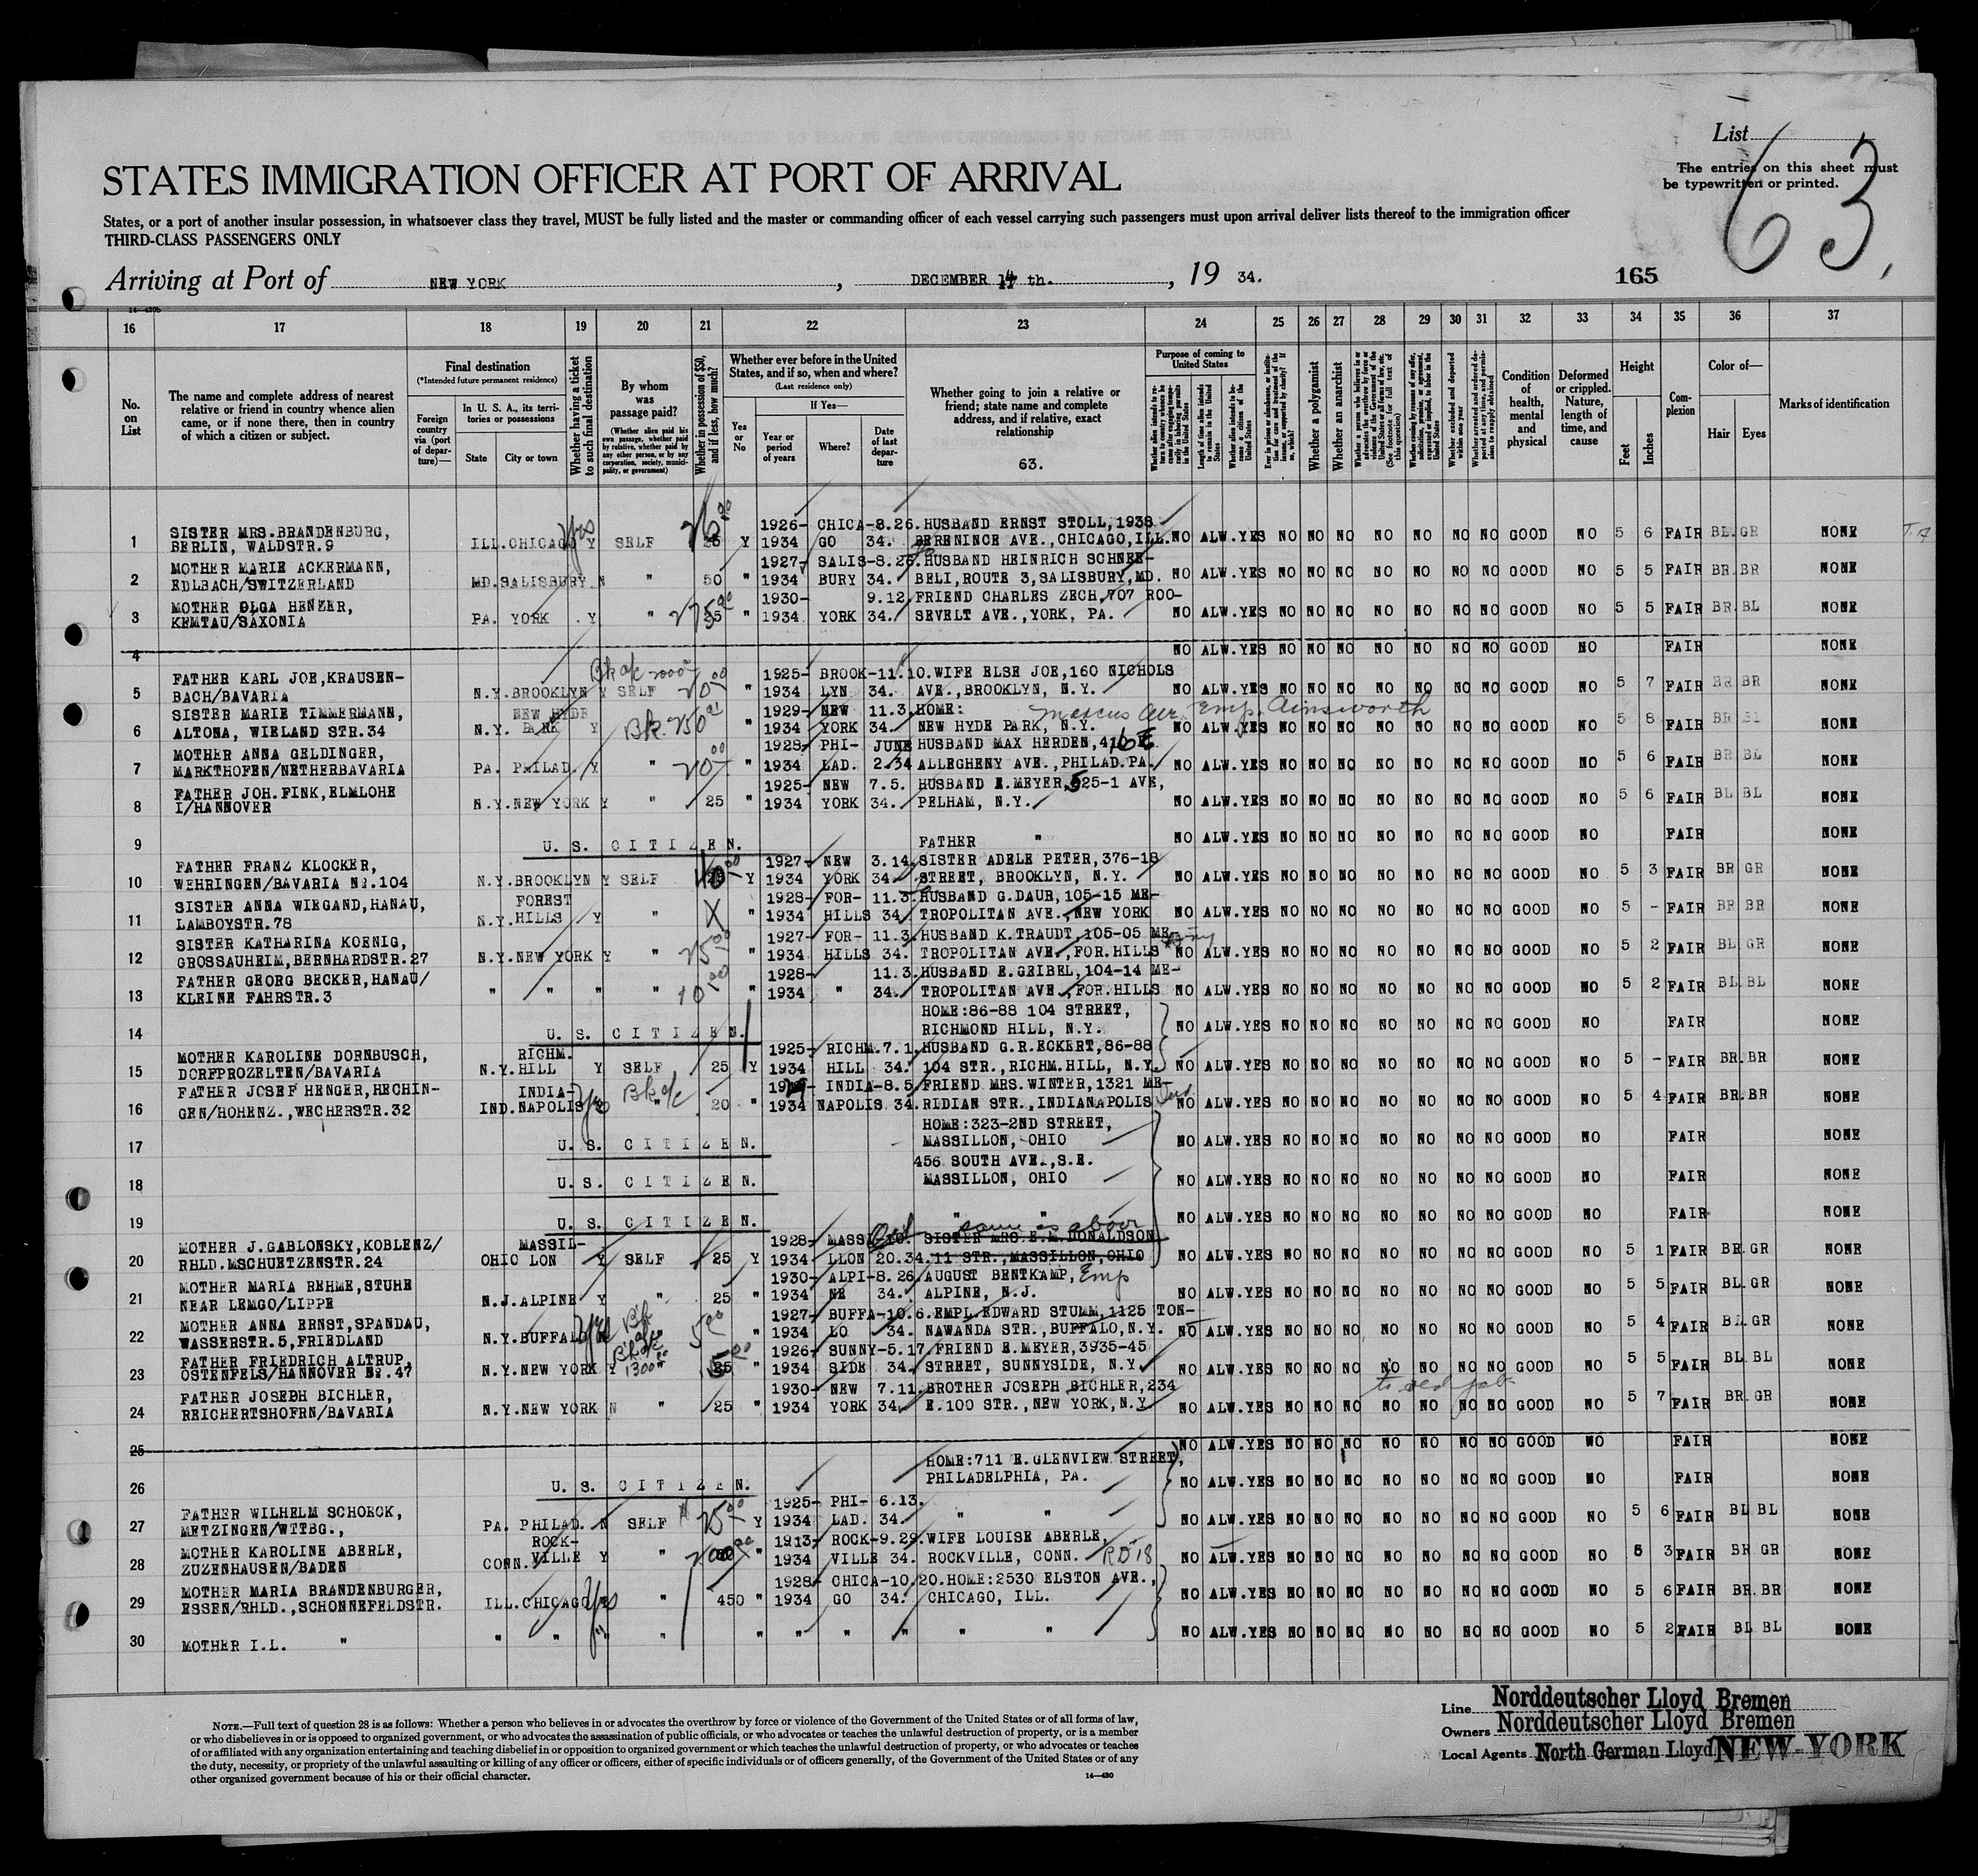 List 63,
STATES IMMIGRATION OFFICER AT PORT OF ARRIVAL
The entries on this sheet must
be typewritten or printed.
States, or a port of another insular possession, in whatsoever class they travel, MUST be fully listed and the master or commanding officer of each vessel carrying such passengers must upon arrival deliver lists thereof to the immigration officer
THIRD-CLASS PASSENGERS ONLY
Arriving at Port of NEW YORK, DECEMBER 14 th., 19 34.
165
16 17 18 19 20 21 22 23 24 25 26 27 28 29 30 31 32 33 34 35 36 37
No. on List
The name and complete address of nearest relative or friend in country whence alien came, or if none there, then in country of which a citizen or subject.
Final destination
(*Intended future permanent residence)
Foreign country via (port of departure)—
In U. S. A., its territories or possessions
State City or town
Whether having a ticket to such final destination
By whom was passage paid?
(Whether alien paid his own passage, whether paid by relative, whether paid by any other person, or by any corporation, society, municipality, or government)
Whether in possession of $50, and if less, how much?
Whether ever before in the United States, and if so, when and where?
(Last residence only)
Yes or No
If Yes—
Year or period of years
Where?
Date of last departure
Whether going to join a relative or friend; state name and complete address, and if relative, exact relationship
63.
Purpose of coming to United States
Whether a polygamist
Whether an anarchist
Condition of health, mental and physical
Deformed or crippled. Nature, length of time, and cause
Height
Feet Inches
Complexion
Color of—
Hair Eyes
Marks of identification
1 SISTER MRS.BRANDENBURG, 1926- CHICA-8.26. HUSBAND ERNST STOLL,1938
BERLIN, WALDSTR.9 ILL.CHICAGO Y SELF 25 Y 1934 GO 34. BERENINCE AVE.,CHICAGO,ILL. NO ALW.YES NO NO NO NO NO NO NO GOOD NO 5 6 FAIR BL.GR NONE
2 MOTHER MARIE ACKERMANN, 1927- SALIS-8.26. HUSBAND HEINRICH SCHNEE-
EDLBACH/SWITZERLAND MD.SALISBURY N " 50 " 1934 BURY 34. BELI,ROUTE 3,SALISBURY,MD. NO ALW.YES NO NO NO NO NO NO NO GOOD NO 5 5 FAIR BR.BR NONE
3 MOTHER OLGA HENZER, 1930- 9.12. FRIEND CHARLES ZECH,707 ROO-
KEMTAU/SAXONIA PA. YORK Y " 25 " 1934 YORK 34. SEVELT AVE.,YORK, PA. NO ALW.YES NO NO NO NO NO NO NO GOOD NO 5 5 FAIR BR.BL NONE
4 NO ALW.YES NO NO NO NO NO NO NO GOOD NO FAIR NONE
5 FATHER KARL JOE,KRAUSEN- 1925- BROOK-11.10. WIFE ELSE JOE,160 NICHOLS
BACH/BAVARIA N.Y.BROOKLYN Y SELF " 1934 LYN 34. AVE.,BROOKLYN, N.Y. NO ALW.YES NO NO NO NO NO NO NO GOOD NO 5 7 FAIR BR BR NONE
6 SISTER MARIE TIMMERMANN, NEW HYDE 1929- NEW 11.3. HOME:
ALTONA, WIELAND STR.34 N.Y. PARK Y " 1934 YORK 34. NEW HYDE PARK, N.Y. NO ALW.YES NO NO NO NO NO NO NO GOOD NO 5 8 FAIR BR BL NONE
7 MOTHER ANNA GELDINGER, 1928- PHI- JUNE HUSBAND MAX HERDEN,416 E
MARKTHOFEN/NETHERBAVARIA PA. PHILAD. Y " " 1934 LAD. 2.34 ALLEGHENY AVE.,PHILAD.PA. NO ALW.YES NO NO NO NO NO NO NO GOOD NO 5 6 FAIR BR BL NONE
8 FATHER JOH.FINK,ELMLOHE 1925- NEW 7.5. HUSBAND E.MEYER,525-1 AVE,
I/HANNOVER N.Y.NEW YORK Y " 25 " 1934 YORK 34. PELHAM, N.Y. NO ALW.YES NO NO NO NO NO NO NO GOOD NO 5 6 FAIR BL BL NONE
9 U. S. CITIZEN. FATHER " NO ALW.YES NO NO NO NO NO NO NO GOOD NO FAIR NONE
10 FATHER FRANZ KLOCKER, 1927- NEW 3.14. SISTER ADELE PETER,376-18
WEHRINGEN/BAVARIA Nr.104 N.Y.BROOKLYN Y SELF Y 1934 YORK 34. STREET, BROOKLYN, N.Y. NO ALW.YES NO NO NO NO NO NO NO GOOD NO 5 3 FAIR BR GR NONE
11 SISTER ANNA WIEGAND,HANAU, FOREST 1928- FOR- 11.3. HUSBAND G.DAUB,105-15 ME-
LAMBOYSTR.78 N.Y.HILLS Y " " 1934 HILLS 34. TROPOLITAN AVE.,NEW YORK NO ALW.YES NO NO NO NO NO NO NO GOOD NO 5 - FAIR BR BR NONE
12 SISTER KATHARINA KOENIG, 1927- FOR- 11.3. HUSBAND K.TRAUDT,105-05 ME-
GROSSAUHEIM,BERNHARDSTR.27 N.Y.NEW YORK Y " " 1934 HILLS 34. TROPOLITAN AVE.,FOR.HILLS NO ALW.YES NO NO NO NO NO NO NO GOOD NO 5 2 FAIR BL.GR NONE
13 FATHER GEORG BECKER,HANAU/ 1928- 11.3. HUSBAND E.GEIBEL,104-14 ME-
KLEINE FAHRSTR.3 " " " " " 1934 " 34. TROPOLITAN AVE.,FOR.HILLS NO ALW.YES NO NO NO NO NO NO NO GOOD NO 5 2 FAIR BL BL NONE
14 HOME:86-88 104 STREET,
U. S. CITIZEN. RICHMOND HILL, N.Y. NO ALW.YES NO NO NO NO NO NO NO GOOD NO FAIR NONE
15 MOTHER KAROLINE DORNBUSCH, RICHM. 1925- RICHM.7.1. HUSBAND G.R.ECKERT,86-88
DORFPROZELTEN/BAVARIA N.Y.HILL Y SELF 25 Y 1934 HILL 34. 104 STR.,RICHM.HILL, N.Y. NO ALW.YES NO NO NO NO NO NO NO GOOD NO 5 - FAIR BR.BR NONE
16 FATHER JOSEF HENGER,HECHIN- INDIA- INDIA-8.5. FRIEND MRS.WINTER,1321 ME-
GEN/HOHENZ.,WECHERSTR.32 IND.NAPOLIS " 20 " 1934 NAPOLIS 34. RIDIAN STR.,INDIANAPOLIS NO ALW.YES NO NO NO NO NO NO NO GOOD NO 5 4 FAIR BR.BR NONE
17 HOME:323-2ND STREET,
U. S. CITIZEN. MASSILLON, OHIO NO ALW.YES NO NO NO NO NO NO NO GOOD NO FAIR NONE
18 456 SOUTH AVE.,S.E.
U. S. CITIZEN. MASSILLON, OHIO NO ALW.YES NO NO NO NO NO NO NO GOOD NO FAIR NONE
19 U. S. CITIZEN. " " NO ALW.YES NO NO NO NO NO NO NO GOOD NO FAIR NONE
same as above
20 MOTHER J.GABLONSKY,KOBLENZ/ MASSIL- 1928- MASSI SISTER MRS.E.M.DONALDSON
RHLD.MSCHUETZENSTR.24 OHIO LON Y SELF 25 Y 1934 LLON 20.34. 11 STR.,MASSILLON,OHIO NO ALW.YES NO NO NO NO NO NO NO GOOD NO 5 1 FAIR BR.GR NONE
21 MOTHER MARIA REHME,STUHE 1930- ALPI-8.26. AUGUST BENTKAMP, Emp
NEAR LEMGO/LIPPE N.J.ALPINE Y " 25 " 1934 NE 34. ALPINE, N.J. NO ALW.YES NO NO NO NO NO NO NO GOOD NO 5 5 FAIR BL.GR NONE
22 MOTHER ANNA ERNST,SPANDAU, 1927- BUFFA-10.6. EMPL.EDWARD STUMM,1125 TON-
WASSERSTR.5,FRIEDLAND N.Y.BUFFALO " 1934 LO 34. NAWANDA STR.,BUFFALO,N.Y. NO ALW.YES NO NO NO NO NO NO NO GOOD NO 5 4 FAIR BR.GR NONE
23 FATHER FRIEDRICH ALTRUP, 1926- SUNNY-5.17. FRIEND E.MEYER,3935-45
OSTENFELS/HANNOVER Nr.47 N.Y.NEW YORK Y " 1934 SIDE 34. STREET, SUNNYSIDE, N.Y. NO ALW.YES NO NO NO NO NO NO NO GOOD NO 5 5 FAIR BL BL NONE
to old job
24 FATHER JOSEPH BICHLER, 1930- NEW 7.11. BROTHER JOSEPH BICHLER,234
REICHERTSHOFRN/BAVARIA N.Y.NEW YORK N " 25 " 1934 YORK 34. E.100 STR.,NEW YORK,N.Y. NO ALW.YES NO NO NO NO NO NO NO GOOD NO 5 7 FAIR BR.GR NONE
25 NO ALW.YES NO NO NO NO NO NO NO GOOD NO FAIR NONE
26 HOME:711 E.GLENVIEW STREET,
U. S. CITIZEN. PHILADELPHIA, PA. NO ALW.YES NO NO NO NO NO NO NO GOOD NO FAIR NONE
27 FATHER WILHELM SCHOECK, 1925- PHI- 6.13.
METZINGEN/WTTBG., PA. PHILAD. N SELF Y 1934 LAD. 34. " " NO ALW.YES NO NO NO NO NO NO NO GOOD NO 5 6 FAIR BL BL NONE
28 MOTHER KAROLINE ABERLE, ROCK- 1913- ROCK-9.29. WIFE LOUISE ABERLE,
ZUZENHAUSEN/BADEN CONN. VILLE Y " " 1934 VILLE 34. ROCKVILLE, CONN. NO ALW.YES NO NO NO NO NO NO NO GOOD NO 5 3 FAIR BR GR NONE
29 MOTHER MARIA BRANDENBURGER, 1928- CHICA-10.20. HOME:2530 ELSTON AVE.,
ESSEN/RHLD.,SCHONNEFELDSTR. ILL.CHICAGO Yes " 450 " 1934 GO 34. CHICAGO, ILL. NO ALW.YES NO NO NO NO NO NO NO GOOD NO 5 6 FAIR BR.BR NONE
30 MOTHER I.L. " " " " " " " " " " " NO ALW.YES NO NO NO NO NO NO NO GOOD NO 5 2 FAIR BL BL NONE
NOTE.—Full text of question 28 is as follows: Whether a person who believes in or advocates the overthrow by force or violence of the Government of the United States or of all forms of law,
or who disbelieves in or is opposed to organized government, or who advocates the assassination of public officials, or who advocates or teaches the unlawful destruction of property, or is a member
of or affiliated with any organization entertaining and teaching disbelief in or opposition to organized government or which teaches the unlawful destruction of property, or who advocates or teaches
the duty, necessity, or propriety of the unlawful assaulting or killing of any officer or officers, either of specific individuals or of officers generally, of the Government of the United States or of any
other organized government because of his or their official character.
14—430
Line Norddeutscher Lloyd Bremen
Owners Norddeutscher Lloyd Bremen
Local Agents North German Lloyd NEW-YORK